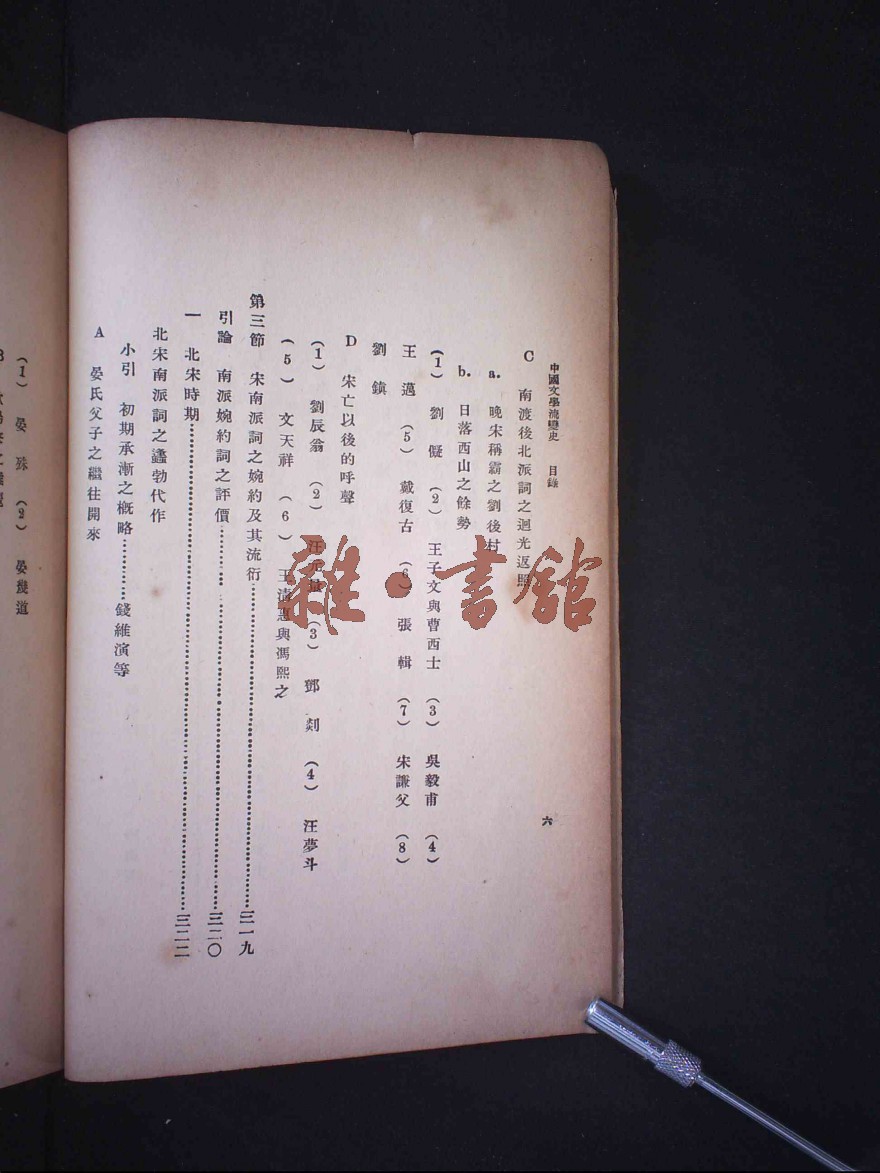 中國文學流變史　目錄　六
C　南渡後北派詞之迴光返照
a.　晚宋稱霸之劉後村
b.　日落西山之餘勢
(1)　劉儗　(2)　王子文與曹西士　(3)　吳毅甫　(4)
王邁　(5)　戴復古　(6)　張輯　(7)　宋謙父　(8)
劉鎮
D　宋亡以後的呼聲
(1)　劉辰翁　(2)　汪元量　(3)　鄧剡　(4)　汪夢斗
(5)　文天祥　(6)　王清惠與馮熙之
第三節　宋南派詞之婉約及其流衍……三一九
引論　南派婉約詞之評價……三二〇
一　北宋時期……三二二
北宋南派詞之蓬勃代作
小引　初期承漸之概略……錢維演等
A　晏氏父子之繼往開來
(1)　晏殊　(2)　晏幾道
雜·書館